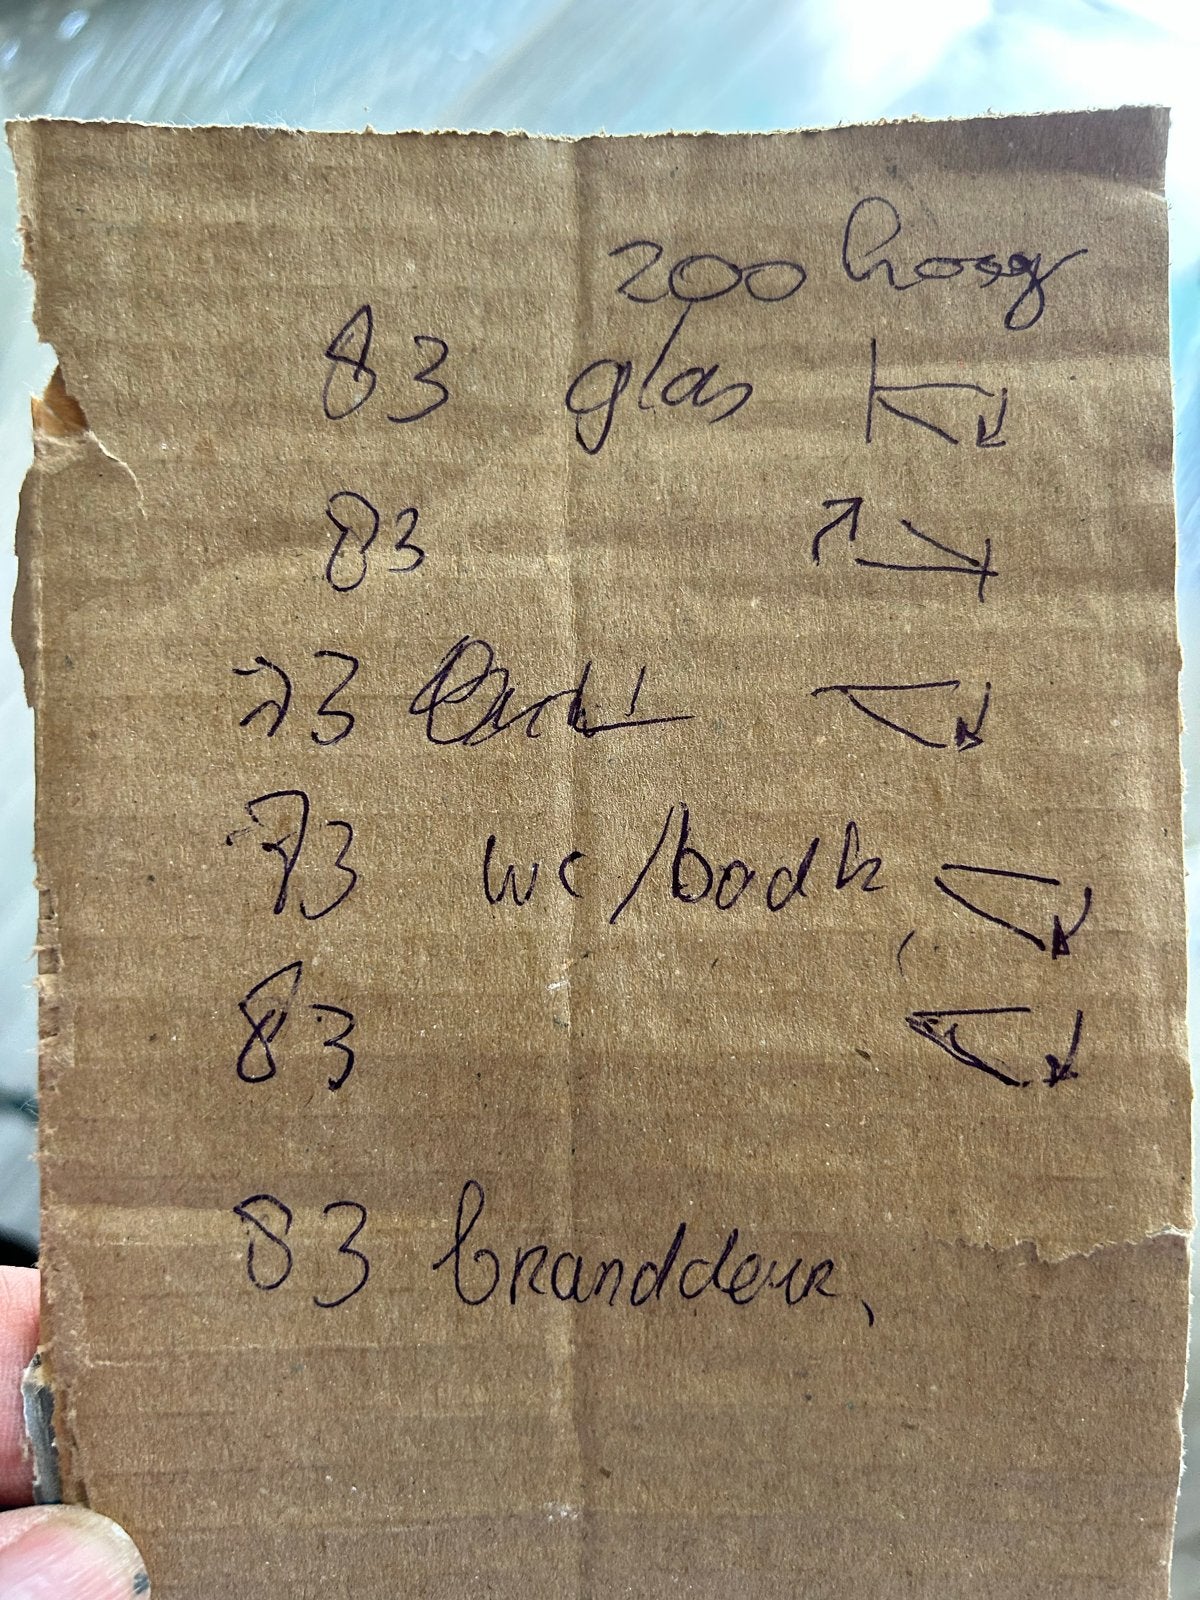 200 hoog
83 glas
83
73
73 wc/badk
83
83 branddeur